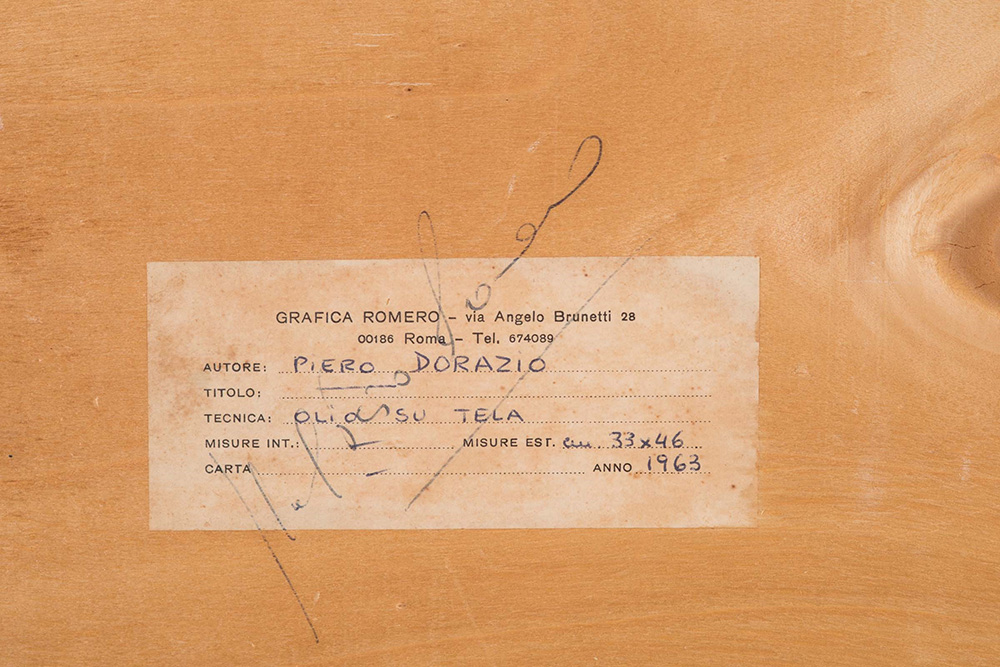 GRAFICA ROMERO – via Angelo Brunetti 28
00186 Roma – Tel. 674089
AUTORE: PIERO DORAZIO
TITOLO:
TECNICA: OLIO SU TELA
MISURE INT.: MISURE EST. cm 33x46
CARTA ANNO 1963